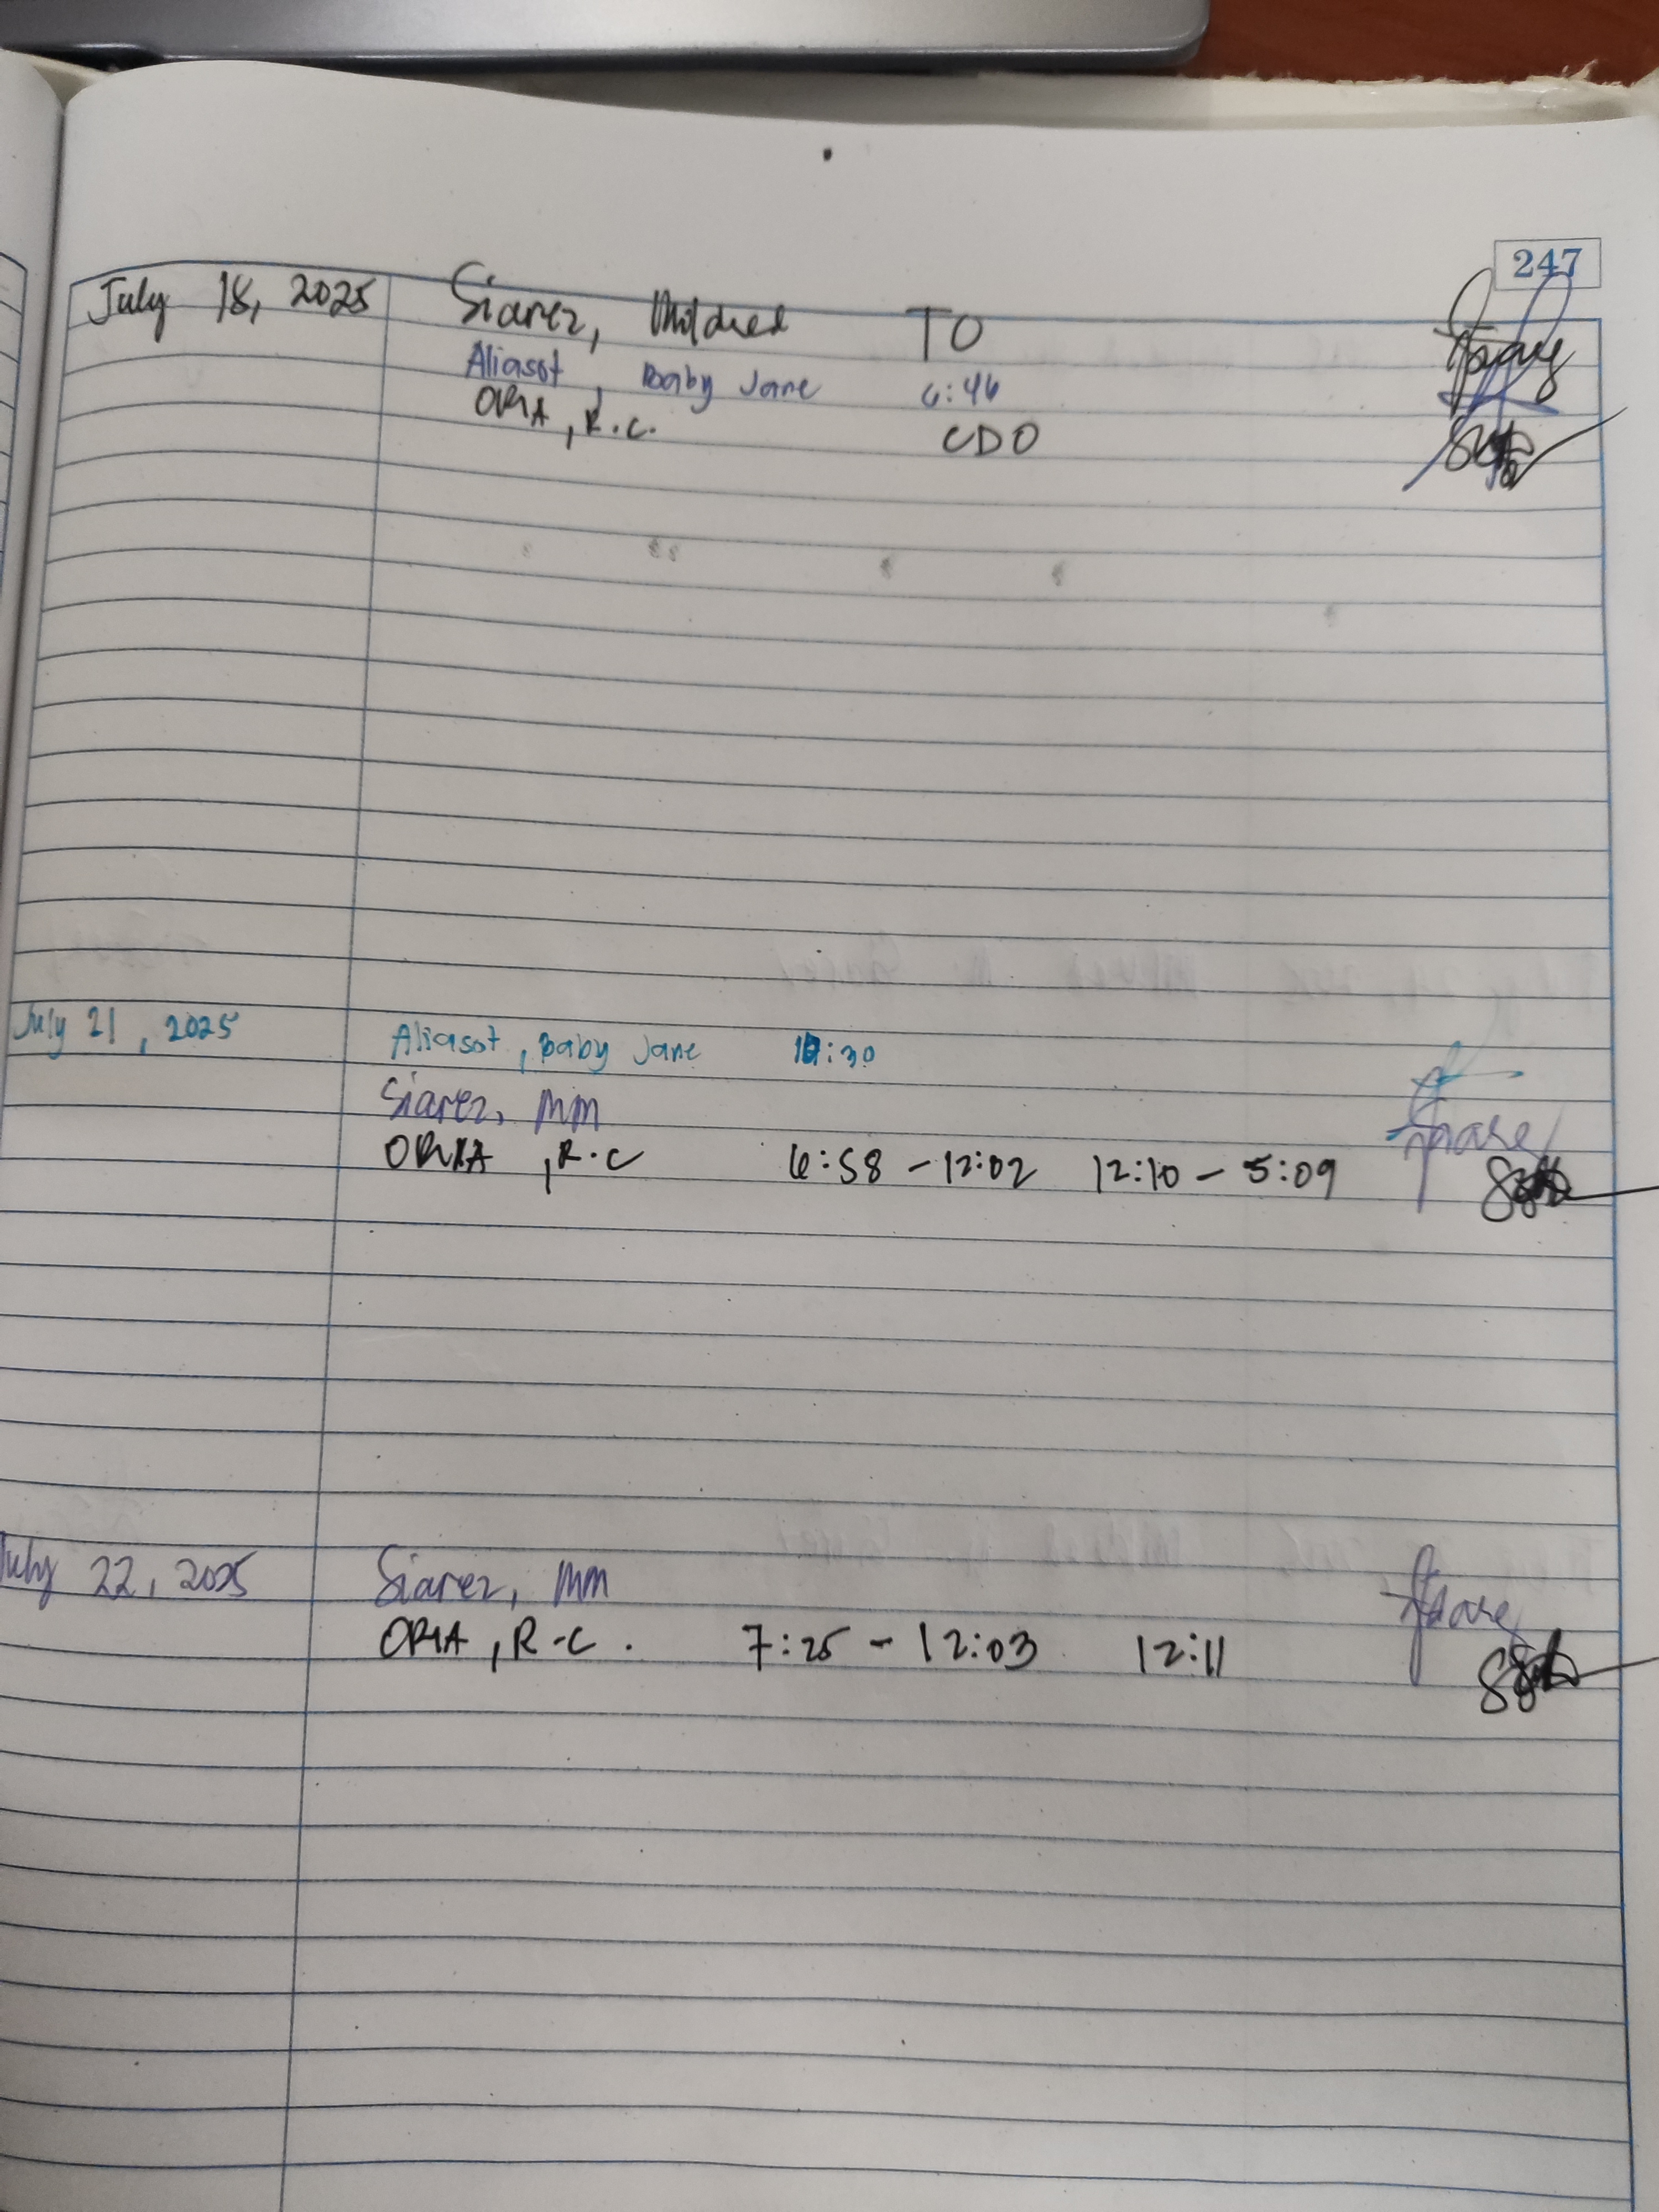 247
July 18, 2025 Siarez, Mildred TO
Aliasot, Baby Jane 6:46
ORIA, R.C. CDO
July 21, 2025 Aliasot, Baby Jane :30
Siarez, MM
ORIA, R.C 6:58 - 12:02 12:10 - 5:09
July 22, 2025 Siarez, MM
ORIA, R-C. 7:25 - 12:03 12:11